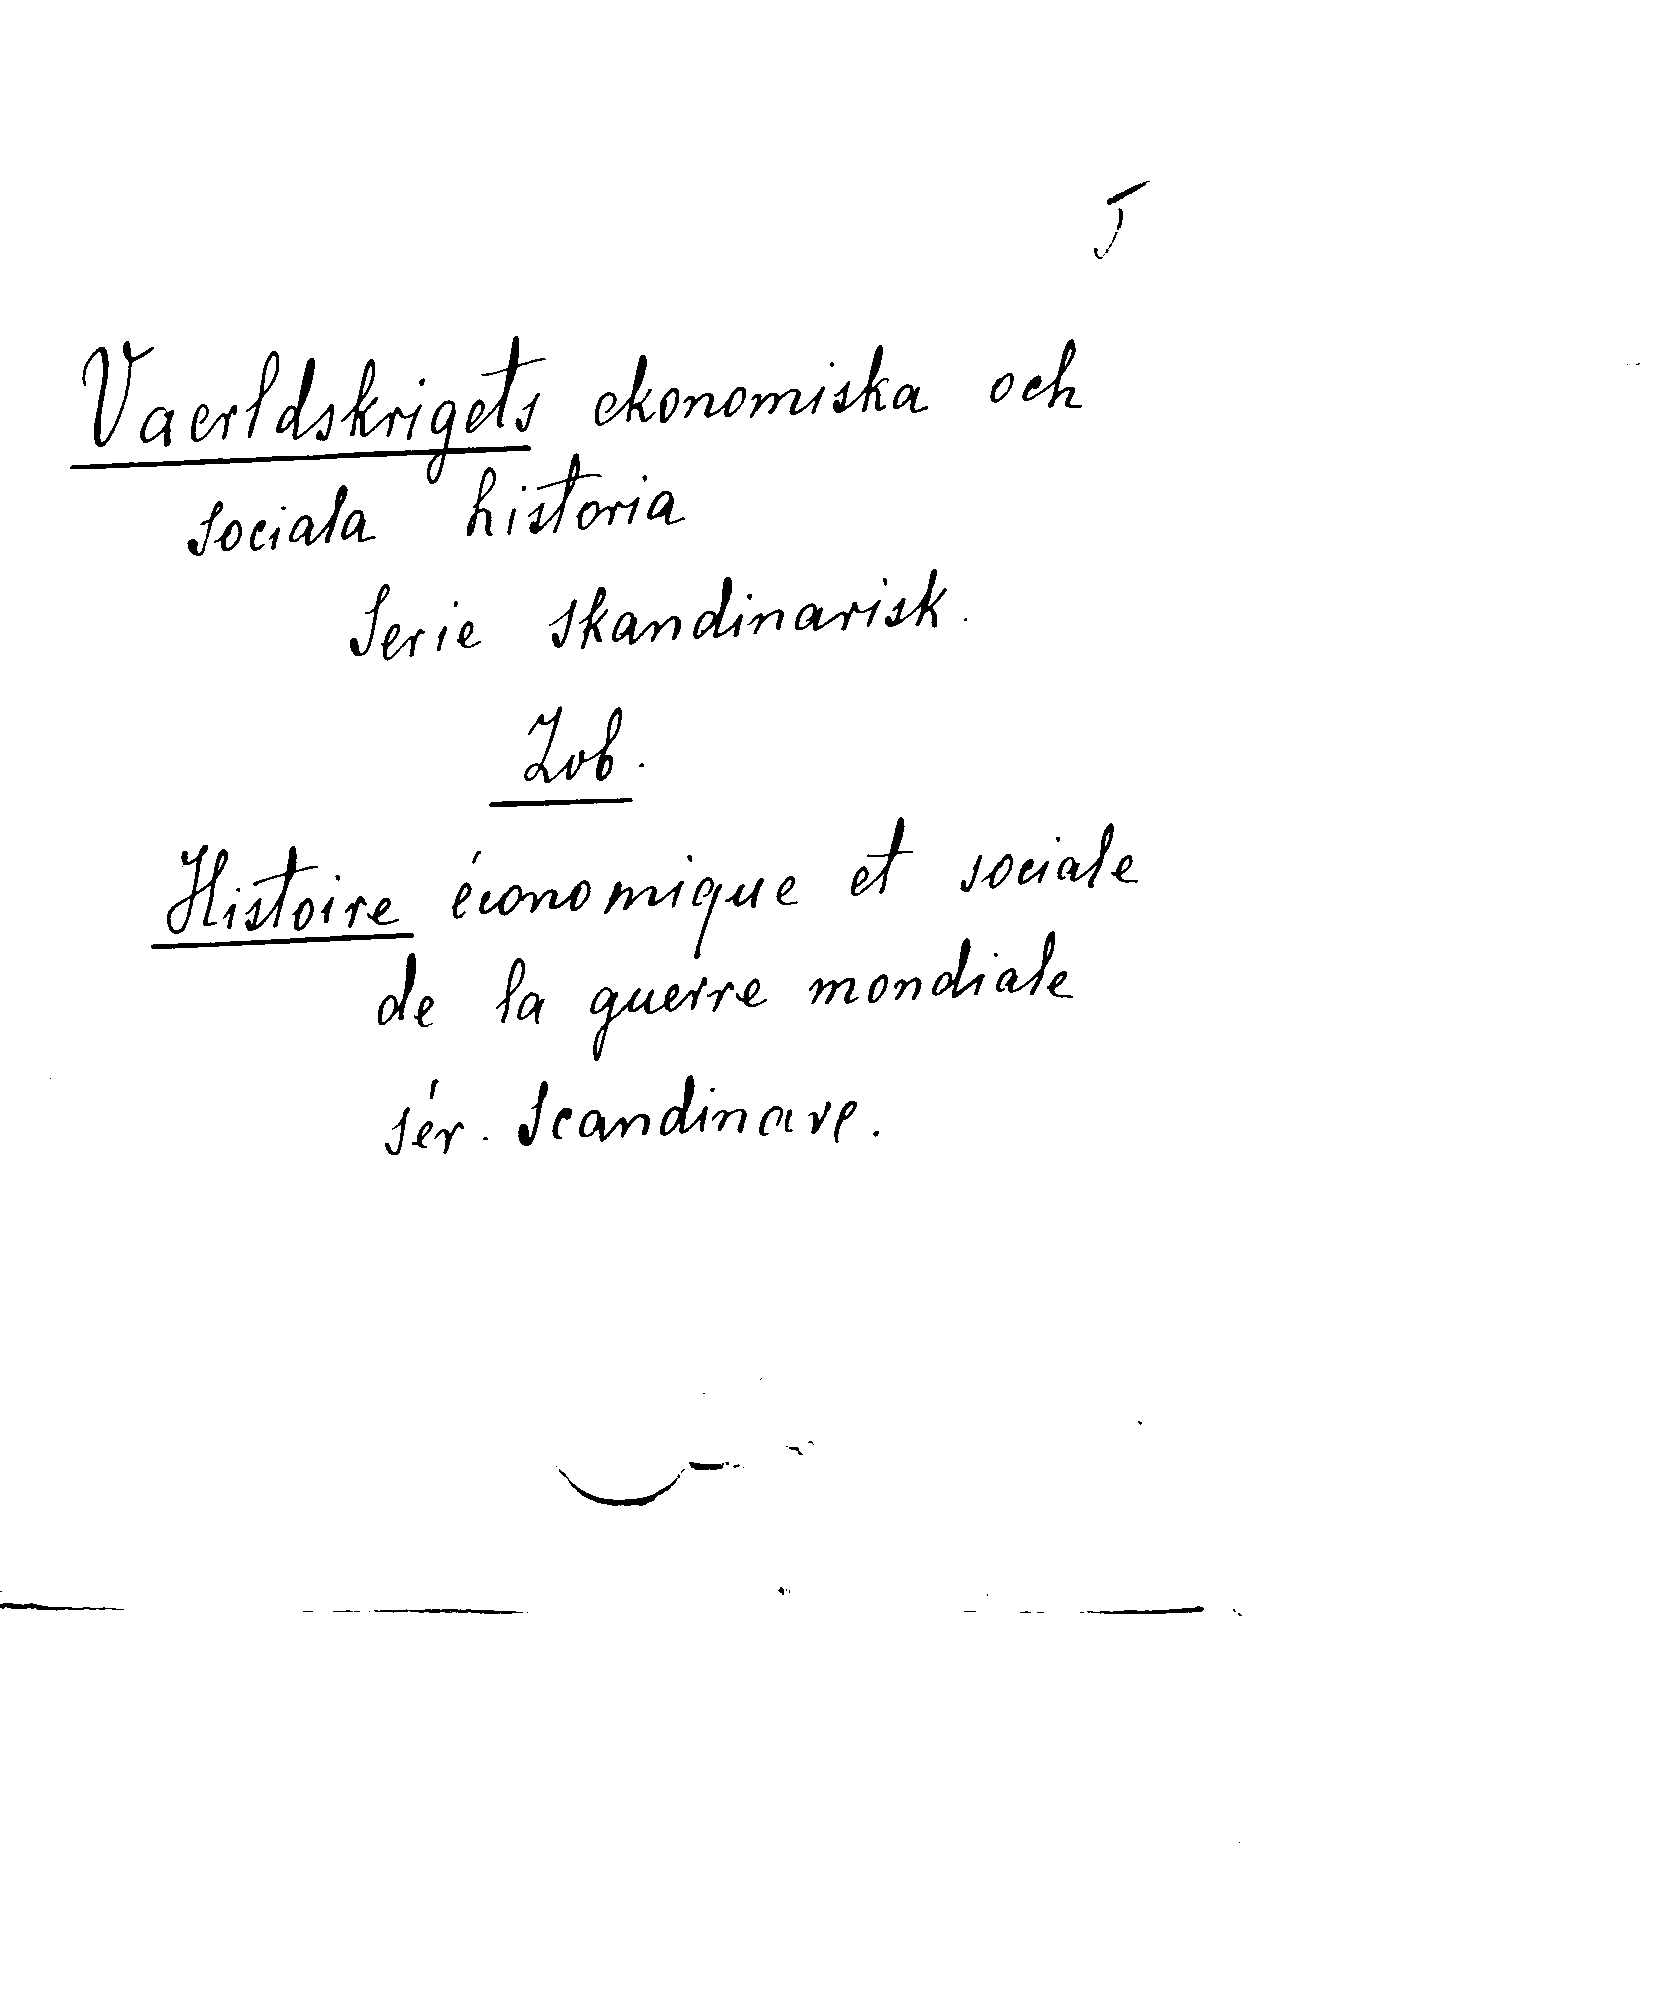 J
Vaerldskrigets ekonomiska och
sociala historia
Serie skandinavisk.
Zob.
Histoire économique et sociale
de la guerre mondiale
sér. Scandinave.